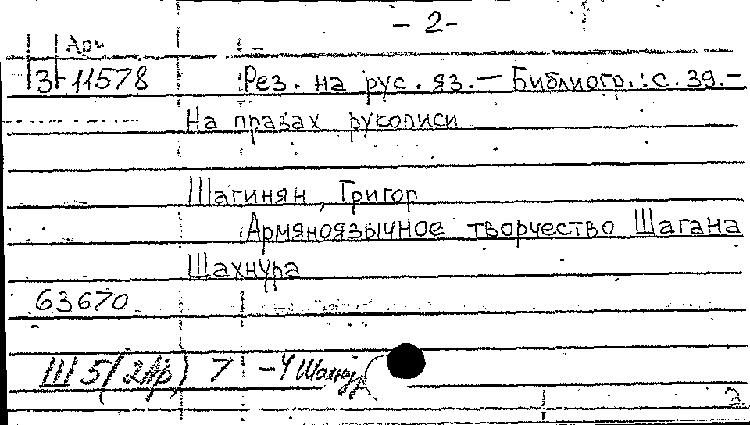 - 2 -
Арм
3-11578 Рез. на рус. яз. — Библиогр.: с. 39. —
На правах рукописи
Шагинян, Григор
Армяноязычное творчество Шагана
Шахнура
63670
Ш 5(2Ар) 7 -4
2